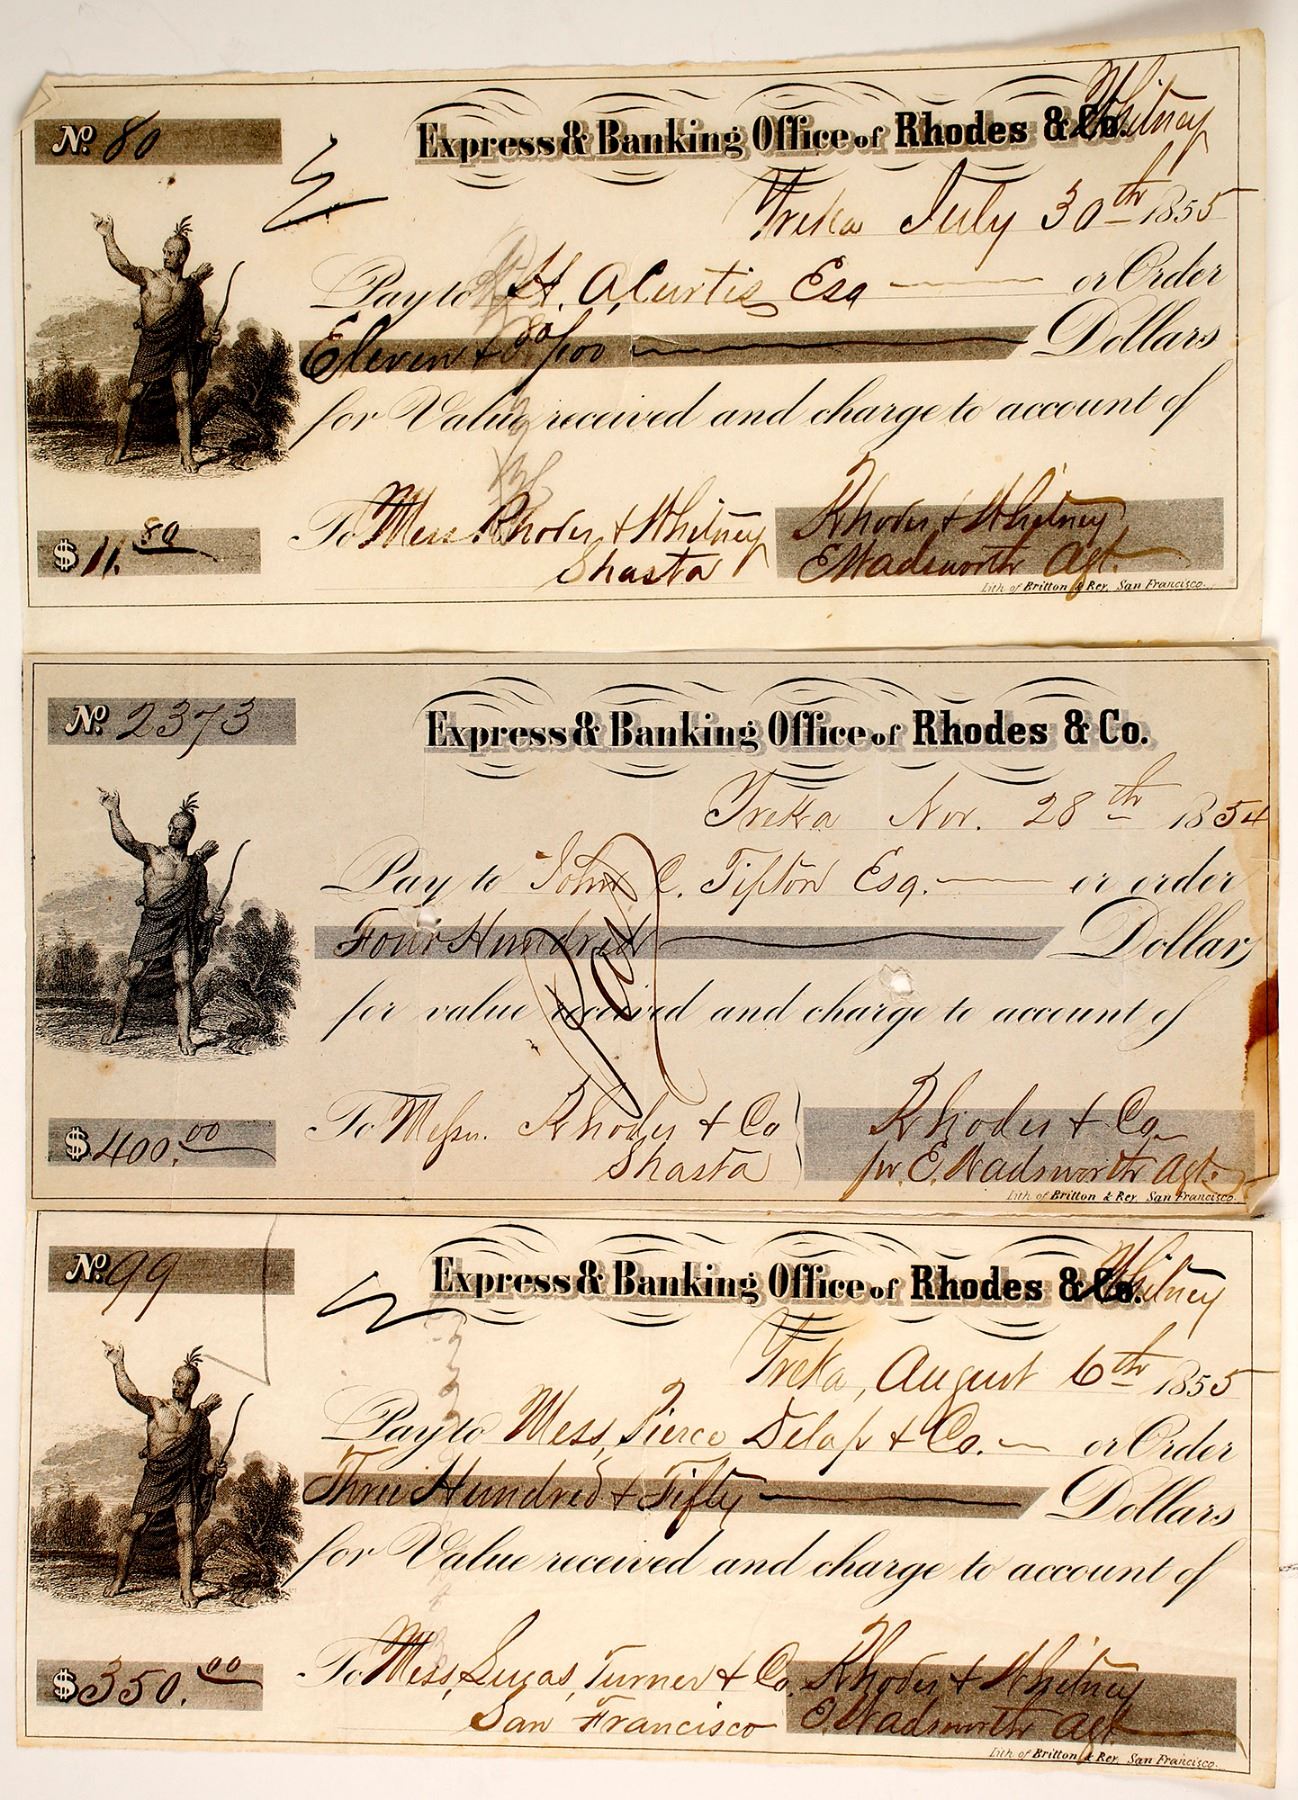 No. 80
Express & Banking Office of Rhodes & Co. Whitney
Yreka July 30th 1855
Pay to H. A. Curtis Esq or Order
Eleven & 80/100 Dollars
for Value received and charge to account of
$11.80
To Mess. Rhodes & Whitney
Shasta
Rhodes & Whitney
E Wadsworth Agt.
Lith of Britton & Rey, San Francisco.
No. 2373
Express & Banking Office of Rhodes & Co.
Yreka Nov. 28th 1854
Pay to John C. Tipton Esq. or order
Four Hundred Dollars
Paid
for value received and charge to account of
$400.00
To Messrs. Rhodes & Co
Shasta
Rhodes & Co
pr. E. Wadsworth Agt.
Lith of Britton & Rey, San Francisco.
No. 99
Express & Banking Office of Rhodes & Co. Whitney
Yreka, August 6th 1855
Pay to Mess, Pierce Delap & Co. or Order
Three Hundred & Fifty Dollars
for Value received and charge to account of
$350.00
To Mess, Lucas, Turner & Co.
San Francisco
Rhodes & Whitney
E. Wadsworth Agt
Lith of Britton & Rey, San Francisco.